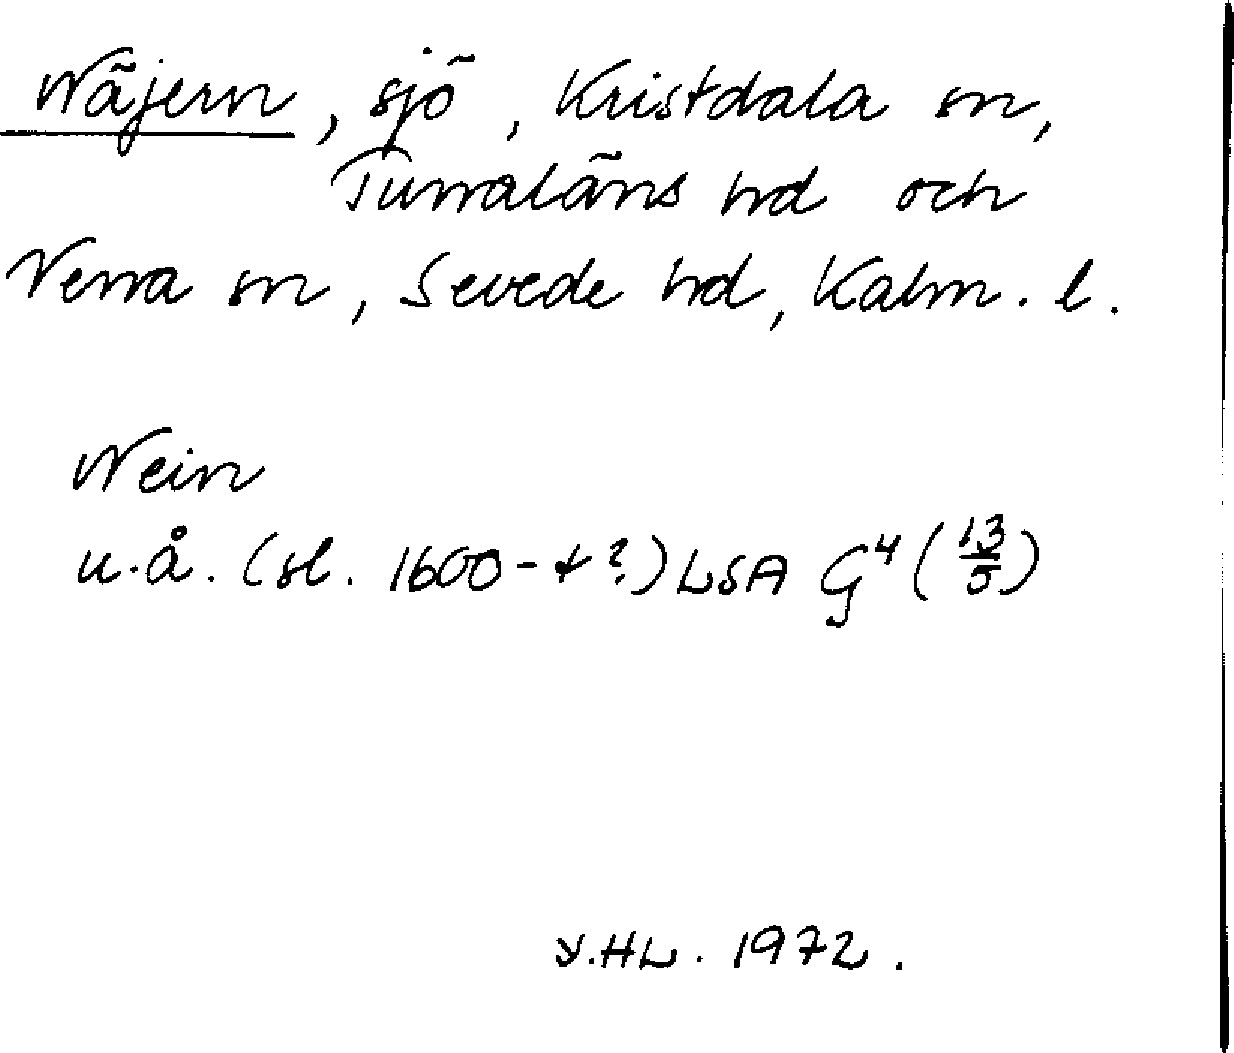 Näjern, sjö, Kristdala sn,
Tunaläns hd och
Vena sn, Sevede hd, Kalm. l.
Nein
u.å. (sl. 1600-t?) LSA G4 (13/5)
Y.HL. 1972.